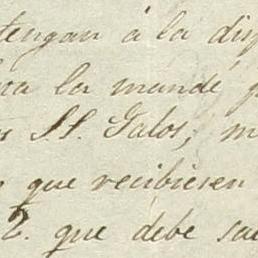 tengan á la disp
la mande
SS. Galos, m
que recibiesen
E. que debe sa